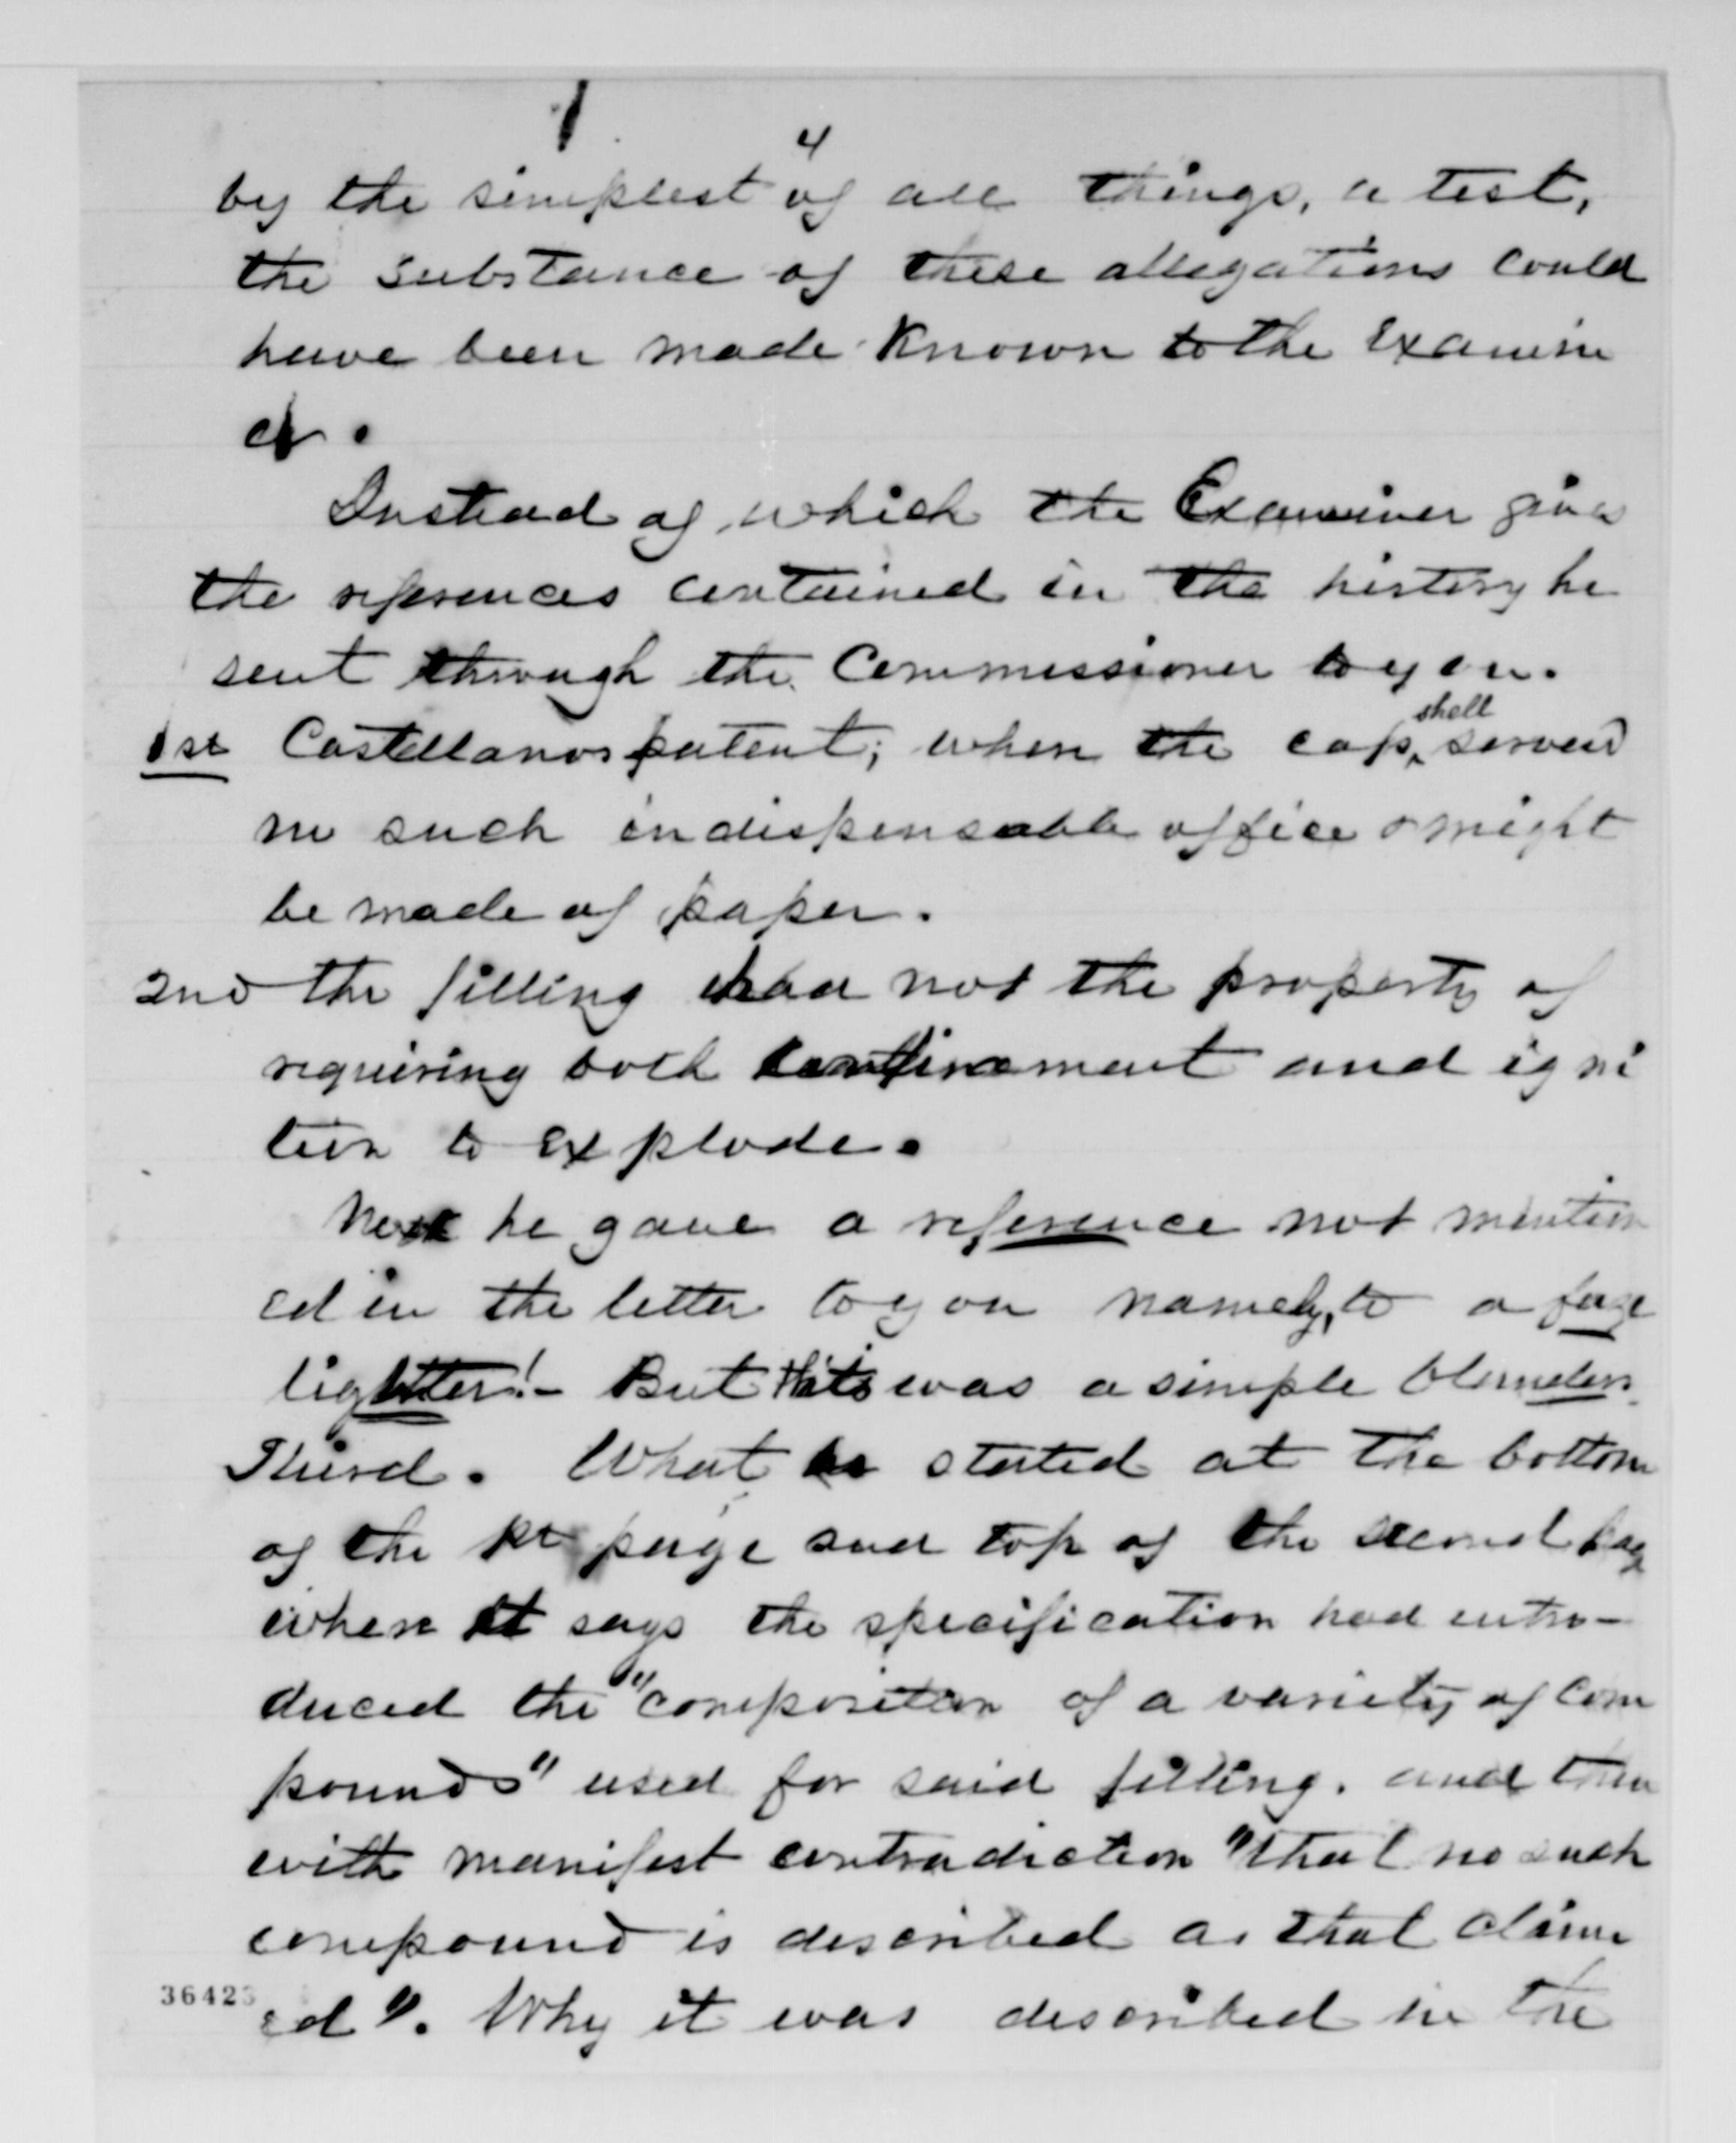 4
by the simplest of all things, a test,
the substance of these allegations could
have been made known to the Examin
er.
Instead of which the Examiner gives
the references contained in the history he
sent through the Commissioner to you.
1st Castellanos patent; when the cap shell served
no such indispensable office & might
be made of paper.
2nd the filling had not the property of
requiring both confinement and igni
tion to explode.
Next he gave a reference not mention
ed in the letter to you namely, to a fuze
lighter!- But this was a simple blunder.
Third. What he stated at the bottom
of the 1st page and top of the second page
when it says the specification had intro-
duced the "composition of a variety of com
pounds" used for said filling. and then
with manifest contradiction "that no such
compound is described as that claim
ed". Why it was described in the
36423